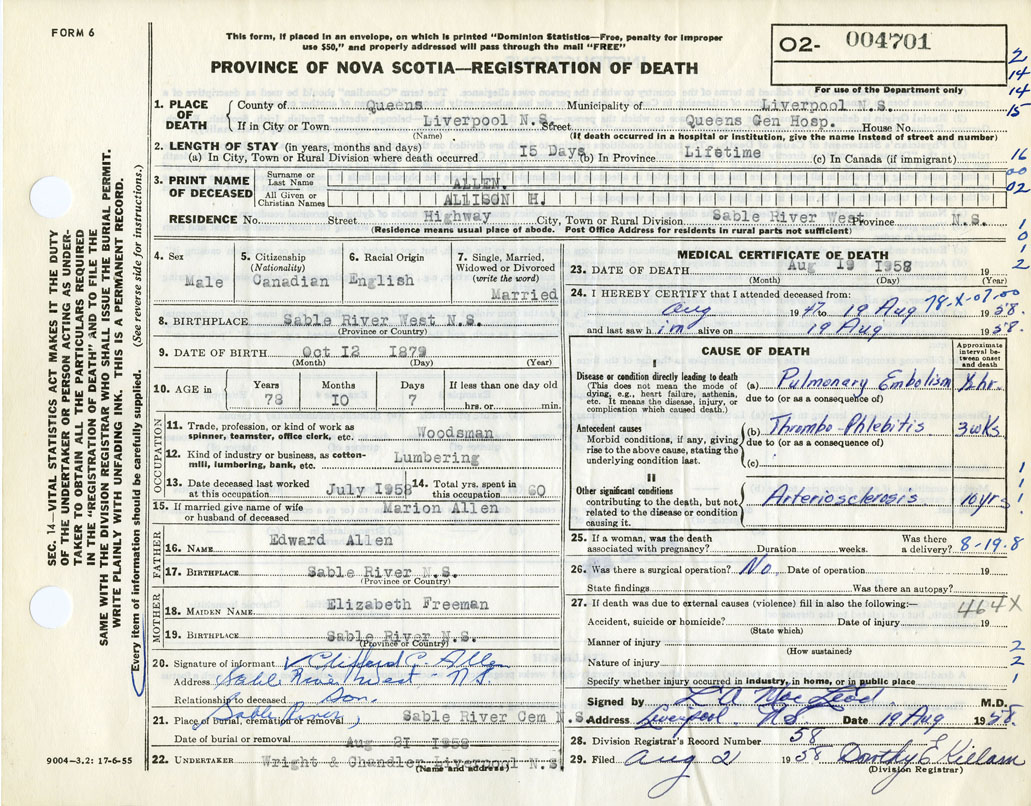 FORM 6
This form, if placed in an envelope, on which is printed "Dominion Statistics—Free, penalty for improper
use $50," and properly addressed will pass through the mail "FREE"
PROVINCE OF NOVA SCOTIA—REGISTRATION OF DEATH
O2- 004701
For use of the Department only
2
14
14
15
1. PLACE OF DEATH
County of Queens Municipality of Liverpool N.S.
If in City or Town Liverpool N.S. Street Queens Gen Hosp. House No.
(Name) (If death occurred in a hospital or institution, give the name instead of street and number)
2. LENGTH OF STAY (in years, months and days)
(a) In City, Town or Rural Division where death occurred 15 Days (b) In Province Lifetime (c) In Canada (if immigrant)
16
00
02
3. PRINT NAME OF DECEASED
Surname or Last Name ALLEN.
All Given or Christian Names ALLISON H.
RESIDENCE No. Street Highway City, Town or Rural Division Sable River West Province N.S.
(Residence means usual place of abode. Post Office Address for residents in rural parts not sufficient)
1
0
2
SEC. 14—VITAL STATISTICS ACT MAKES IT THE DUTY
OF THE UNDERTAKER OR PERSON ACTING AS UNDER-
TAKER TO OBTAIN ALL THE PARTICULARS REQUIRED
IN THE "REGISTRATION OF DEATH" AND TO FILE THE
SAME WITH THE DIVISION REGISTRAR WHO SHALL ISSUE THE BURIAL PERMIT.
WRITE PLAINLY WITH UNFADING INK. THIS IS A PERMANENT RECORD.
Every item of information should be carefully supplied. (See reverse side for instructions.)
4. Sex
Male
5. Citizenship
(Nationality)
Canadian
6. Racial Origin
English
7. Single, Married,
Widowed or Divorced
(write the word)
Married
8. BIRTHPLACE Sable River West N.S.
(Province or Country)
9. DATE OF BIRTH Oct 12 1879
(Month) (Day) (Year)
10. AGE in
Years Months Days If less than one day old
78 10 7 hrs. or min.
OCCUPATION
11. Trade, profession, or kind of work as
spinner, teamster, office clerk, etc. Woodsman
12. Kind of industry or business, as cotton-
mill, lumbering, bank, etc. Lumbering
13. Date deceased last worked
at this occupation July 1958
14. Total yrs. spent in
this occupation 60
15. If married give name of wife
or husband of deceased Marion Allen
FATHER
16. NAME Edward Allen
17. BIRTHPLACE Sable River N.S.
(Province or Country)
MOTHER
18. MAIDEN NAME Elizabeth Freeman
19. BIRTHPLACE Sable River N.S.
(Province or Country)
20. Signature of informant Clifford C. Allen
Address Sable River West - N.S.
Relationship to deceased Son.
Sable River
21. Place of burial, cremation or removal Sable River Cem N.S.
Date of burial or removal Aug 21 1958
22. UNDERTAKER Wright & Chandler Liverpool N.S.
(Name and address)
9004—3.2: 17-6-55
MEDICAL CERTIFICATE OF DEATH
23. DATE OF DEATH Aug 19 1958 19
(Month) (Day) (Year)
24. I HEREBY CERTIFY that I attended deceased from:
78-X-07-00
Aug 1947 to 19 Aug 1958.
and last saw him alive on 19 Aug 1958.
CAUSE OF DEATH
Approximate
interval be-
tween onset
and death
I
Disease or condition directly leading to death
(This does not mean the mode of
dying, e.g., heart failure, asthenia,
etc. It means the disease, injury, or
complication which caused death.)
(a) Pulmonary Embolism ½ hr.
due to (or as a consequence of)
Antecedent causes
Morbid conditions, if any, giving
rise to the above cause, stating the
underlying condition last.
(b) Thrombo-Phlebitis 3 wks
due to (or as a consequence of)
(c)
II
Other significant conditions
contributing to the death, but not
related to the disease or condition
causing it.
Arteriosclerosis 10 yrs
1
1
!
25. If a woman, was the death
associated with pregnancy? Duration weeks. Was there
a delivery? 8-19-8
26. Was there a surgical operation? No. Date of operation 19
State findings Was there an autopsy?
27. If death was due to external causes (violence) fill in also the following:—
464X
Accident, suicide or homicide? Date of injury 19
(State which)
Manner of injury
(How sustained)
Nature of injury
Specify whether injury occurred in industry, in home, or in public place
2
2
1
Signed by L A MacLeod M.D.
Address Liverpool. NS Date 19 Aug 1958.
28. Division Registrar's Record Number 58
29. Filed Aug 2 1958 Dorothy E Killam
(Division Registrar)